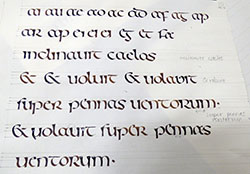 ai au ac ao ac ad af ag ap
ar ap er ei ei eg et fx
inclinavit caelos
& & voluit & volavit
super pennas ventorum.
& volavit super pennas
ventorum.